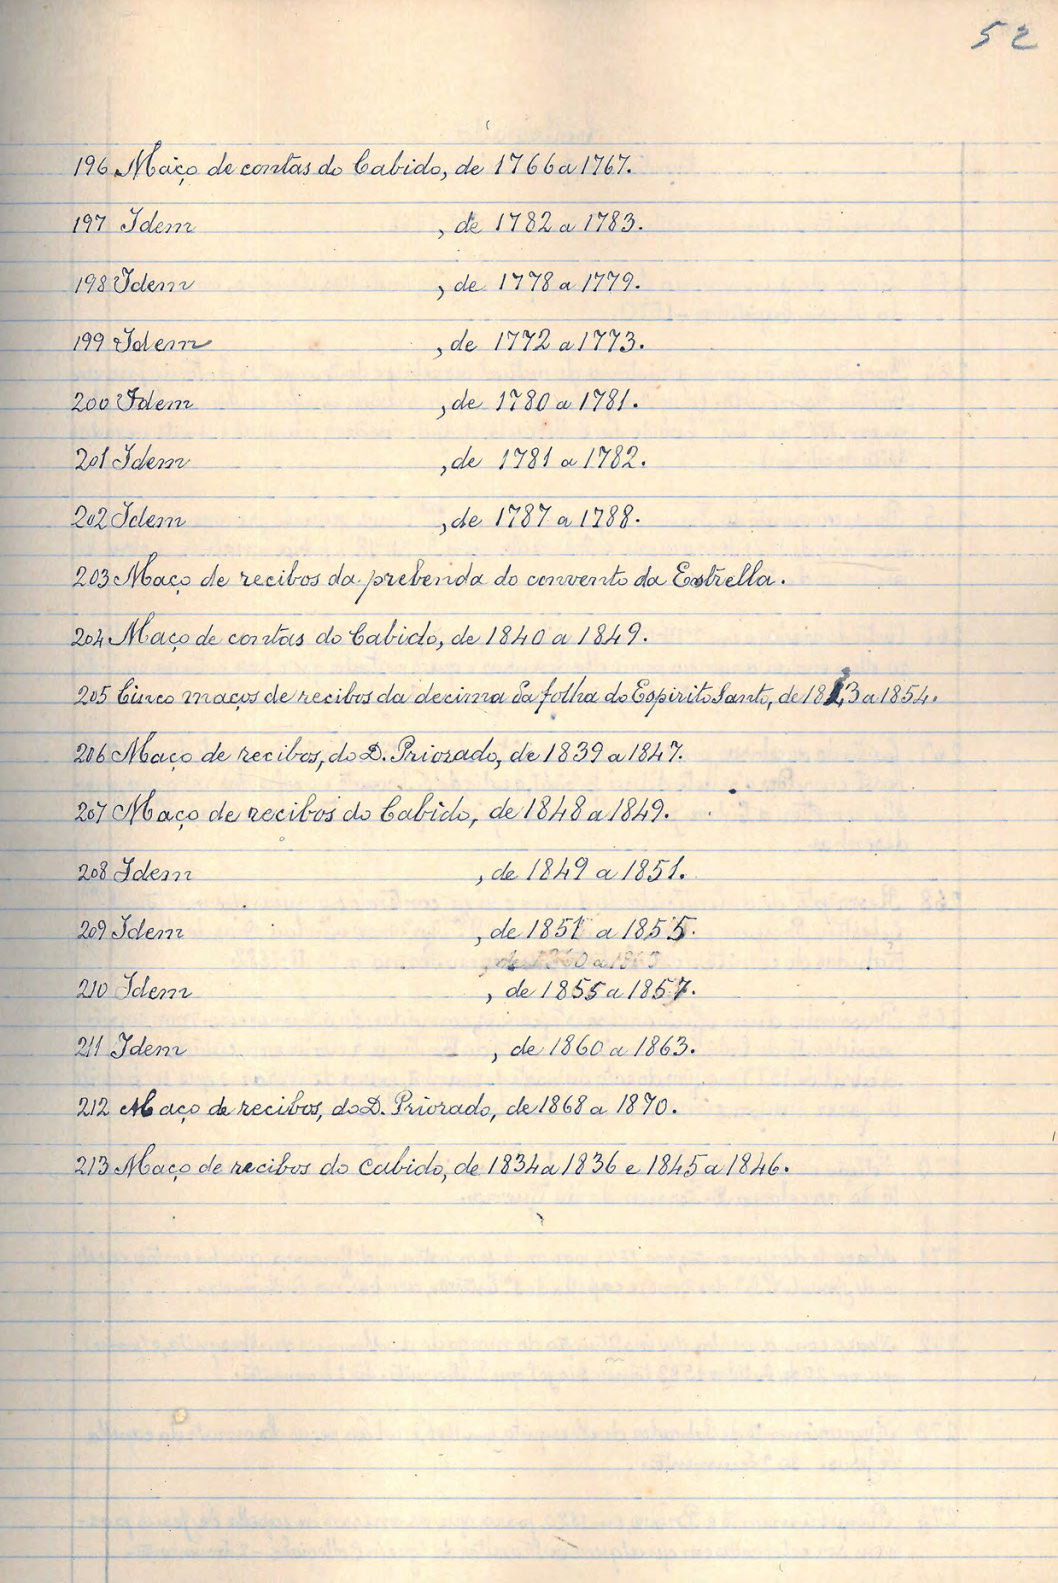 52
196 Maço de contas do Cabido, de 1766 a 1767.
197 Idem , de 1782 a 1783.
198 Idem , de 1778 a 1779.
199 Idem , de 1772 a 1773.
200 Idem , de 1780 a 1781.
201 Idem , de 1781 a 1782.
202 Idem , de 1787 a 1788.
203 Maço de recibos da prebenda do convento da Estrella.
204 Maço de contas do Cabido, de 1840 a 1849.
205 Cinco maços de recibos da decima da folha do Espirito Santo, de a 1854.
206 Maço de recibos, do D. Priorado, de 1839 a 1847.
207 Maço de recibos do Cabido, de 1848 a 1849.
208 Idem , de 1849 a 1851.
209 Idem , de 1851 a 1855.
, de 1860 a 1863
210 Idem , de 1855 a 1857.
211 Idem , de 1860 a 1863.
212 Maço de recibos, do D. Priorado, de 1868 a 1870.
213 Maço de recibos do Cabido, de 1834 a 1836 e 1845 a 1846.